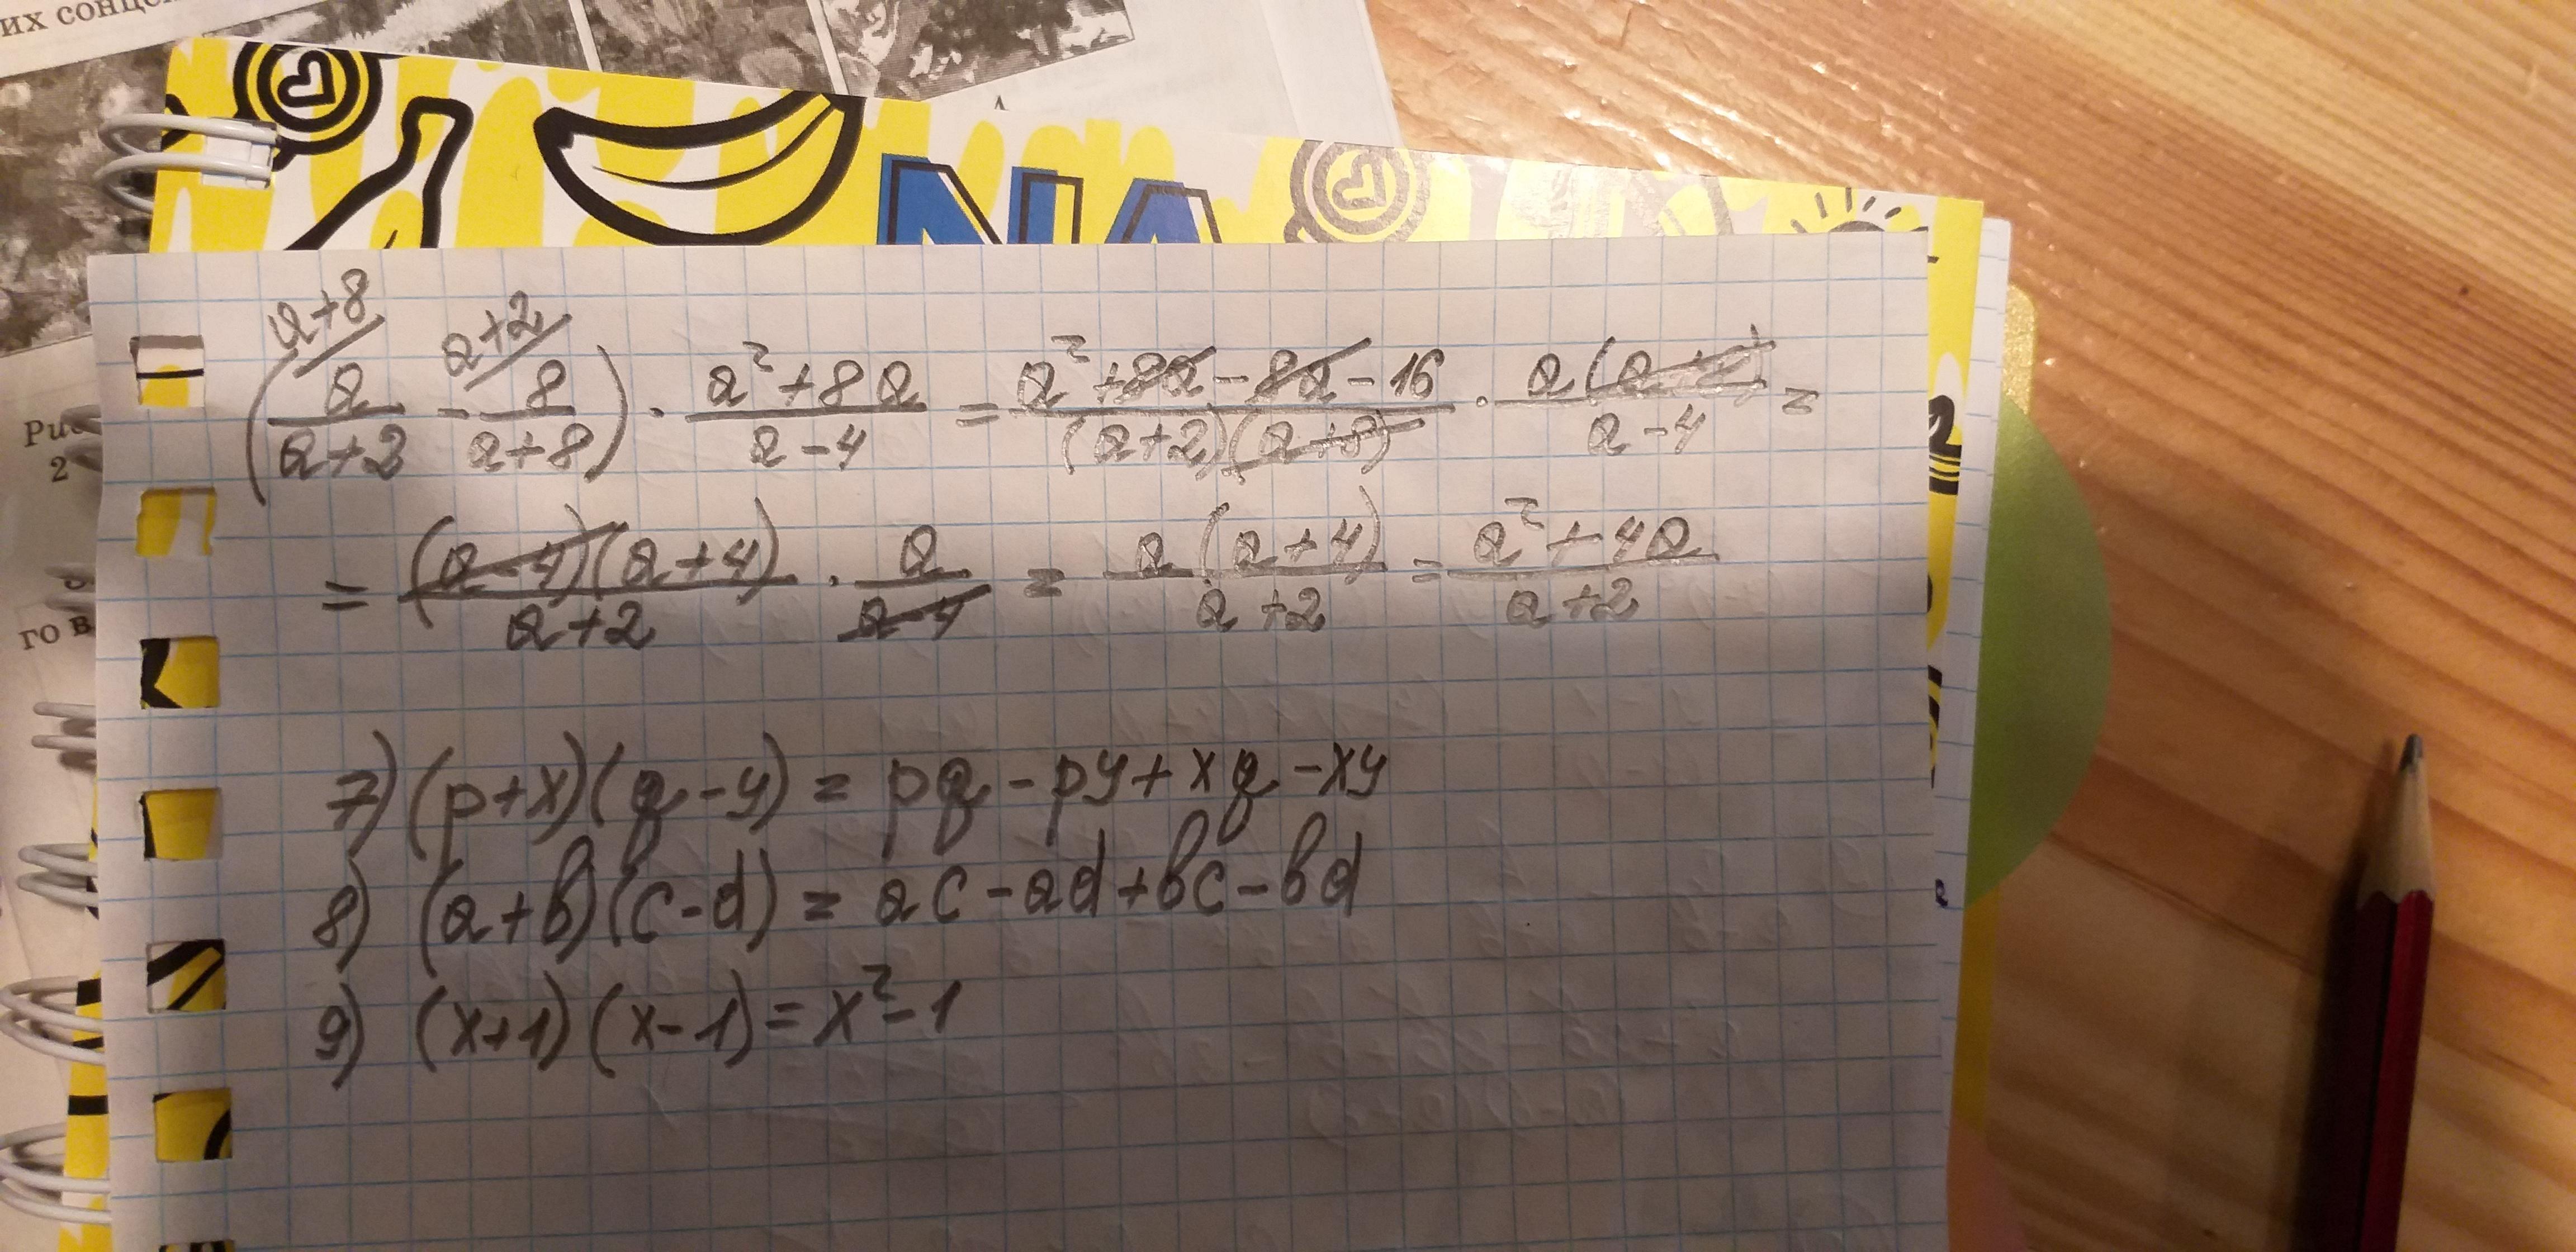 их сонце
NA
Рис
2
го в
(a+8/ a/(a+2) - a+2/ 8/(a+8)) · (a²+8a)/(a-4) = (a²+8a-8a-16)/((a+2)(a+8)) · a(a+8)/(a-4) =
= ((a-4)(a+4))/(a+2) · a/(a-4) = a(a+4)/(a+2) = (a²+4a)/(a+2)
7) (p+x)(q-y) = pq - py + xq - xy
8) (a+b)(c-d) = ac - ad + bc - bd
9) (x+1)(x-1) = x²-1